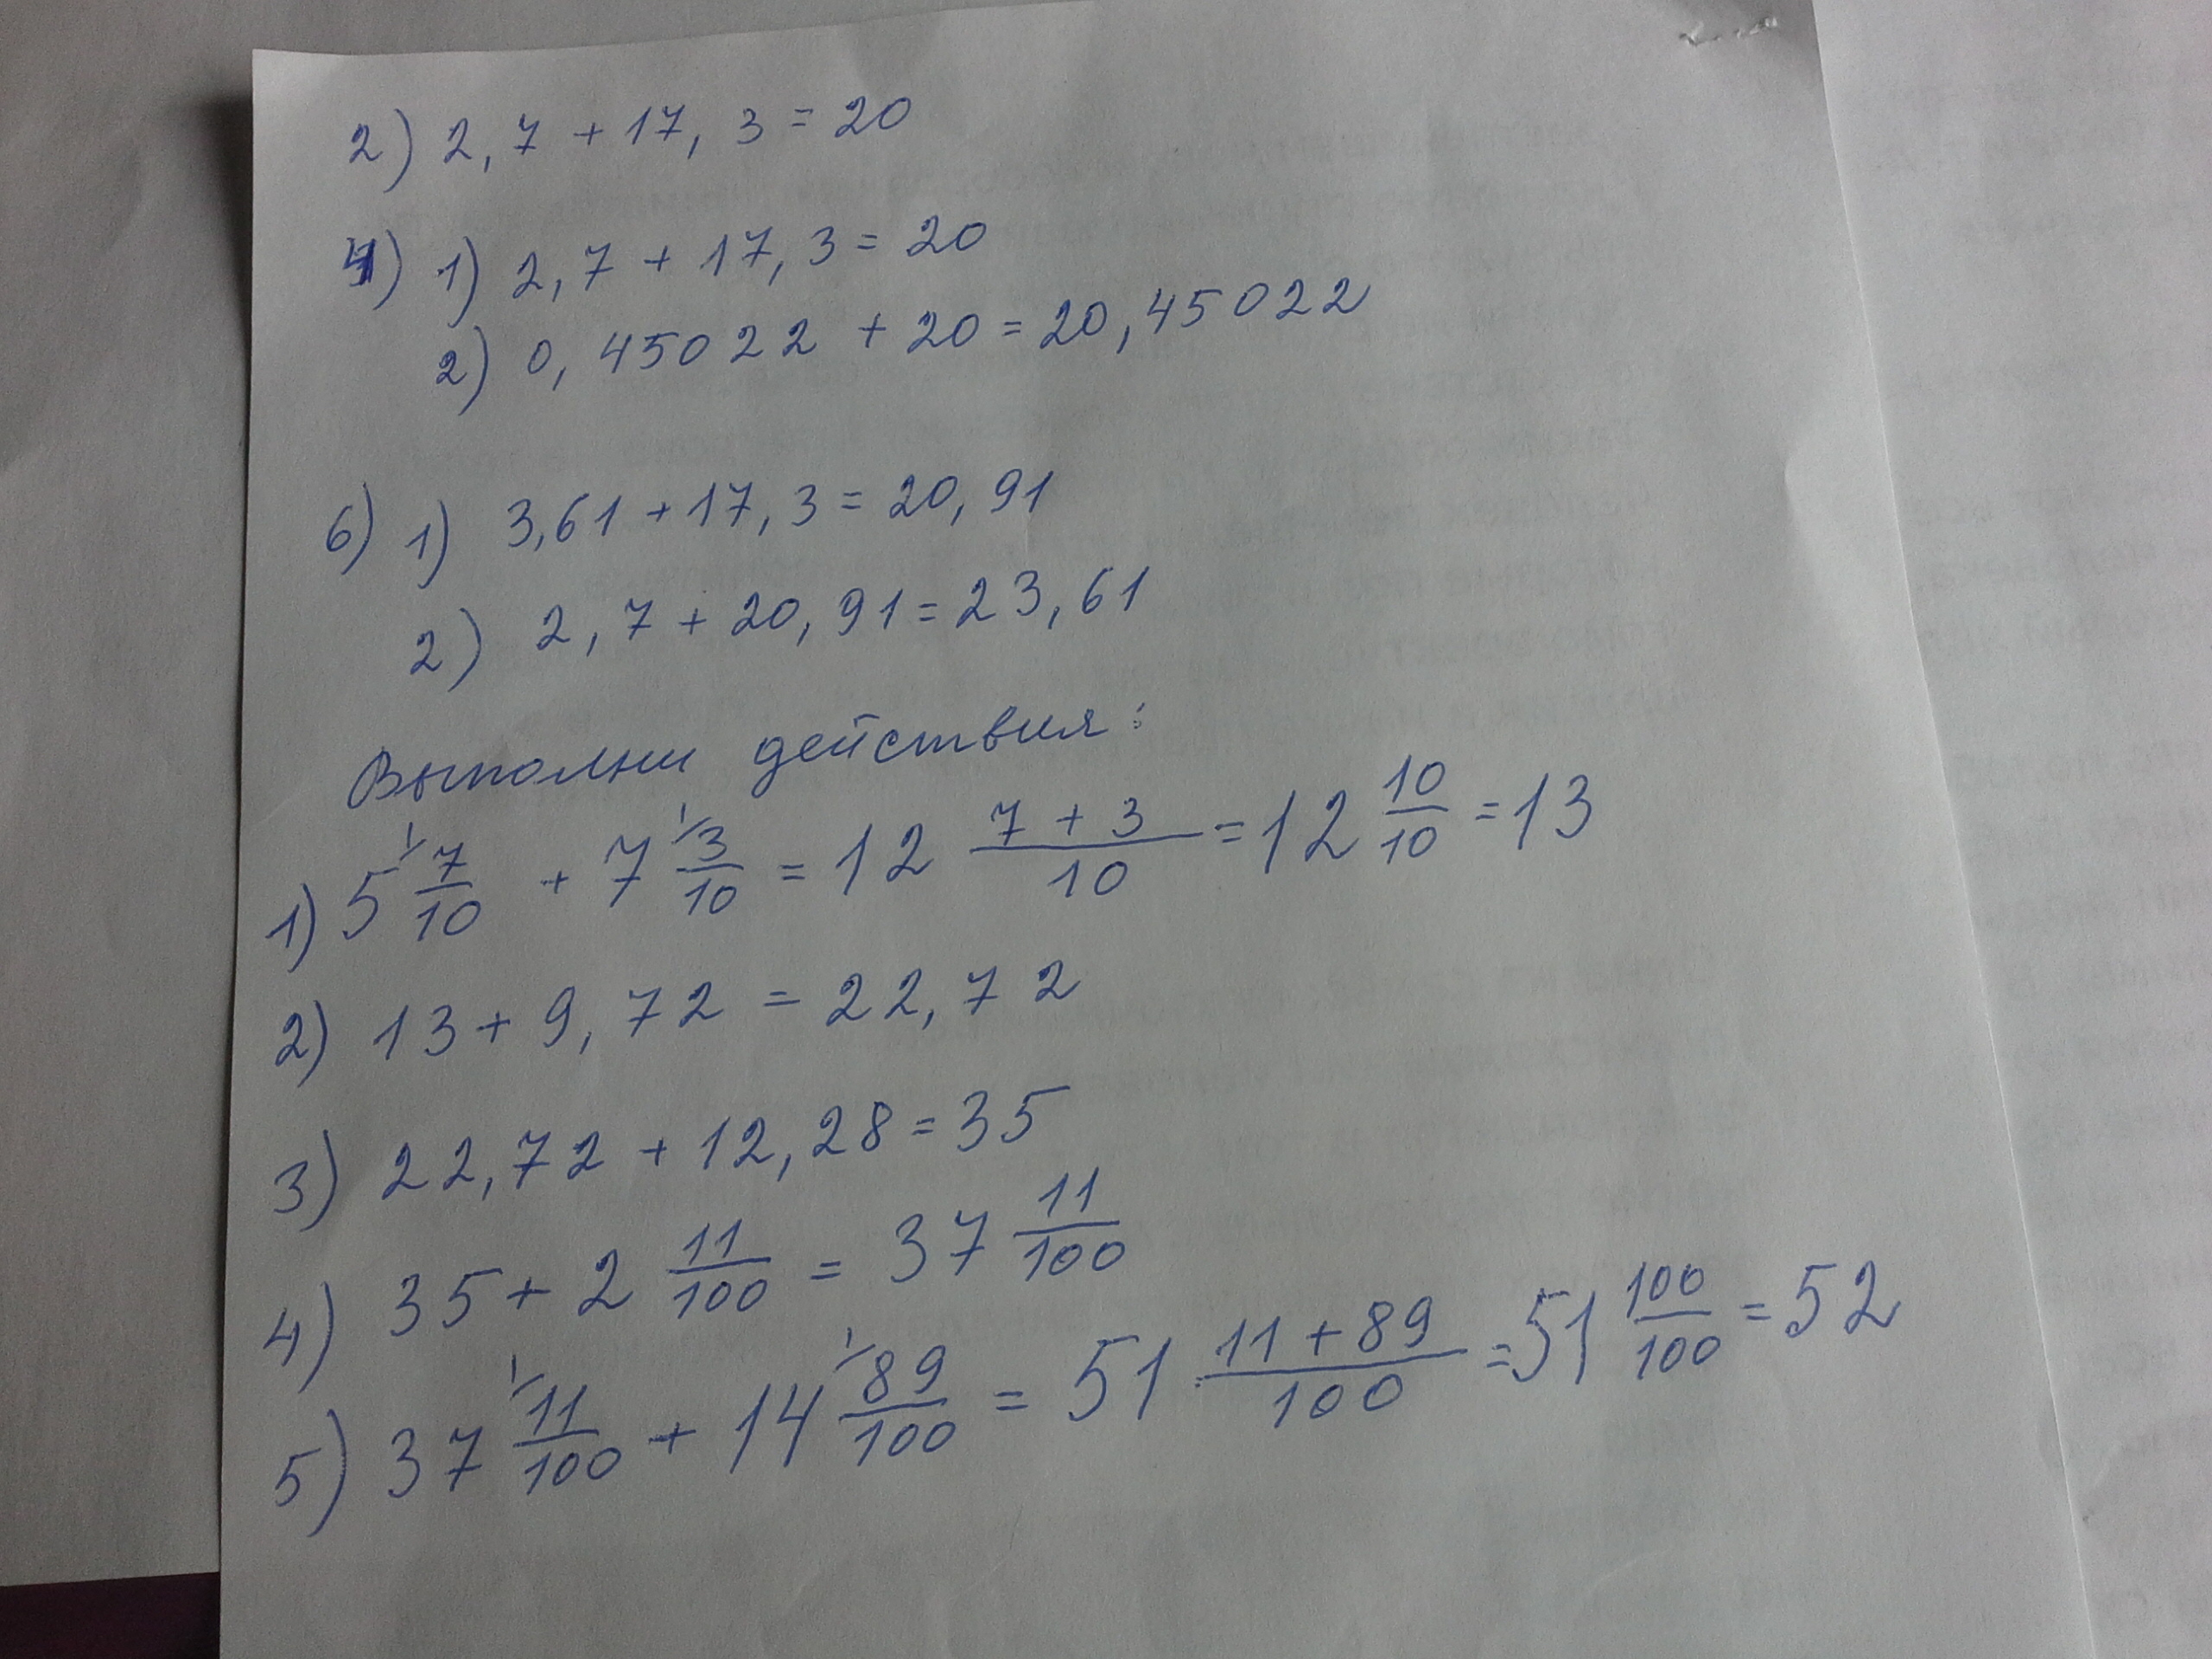 2) 2,7 + 17,3 = 20
4) 1) 2,7 + 17,3 = 20
2) 0,45022 + 20 = 20,45022
6) 1) 3,61 + 17,3 = 20,91
2) 2,7 + 20,91 = 23,61
Выполни действия:
1) 5 7/10 + 7 3/10 = 12 (7 + 3)/10 = 12 10/10 = 13
2) 13 + 9,72 = 22,72
3) 22,72 + 12,28 = 35
4) 35 + 2 11/100 = 37 11/100
5) 37 11/100 + 14 89/100 = 51 (11 + 89)/100 = 51 100/100 = 52